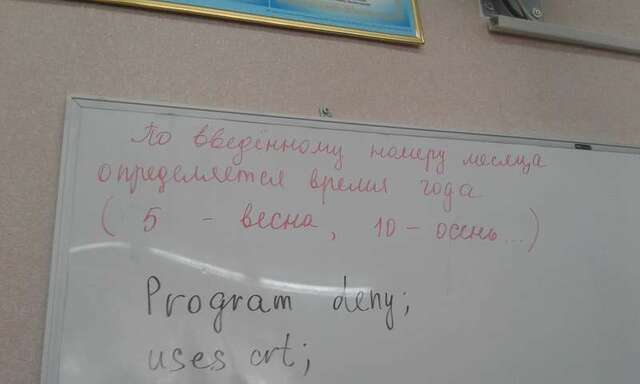 По введённому номеру месяца
определяется время года
( 5 - весна, 10 - осень...)
Program deny;
uses crt;